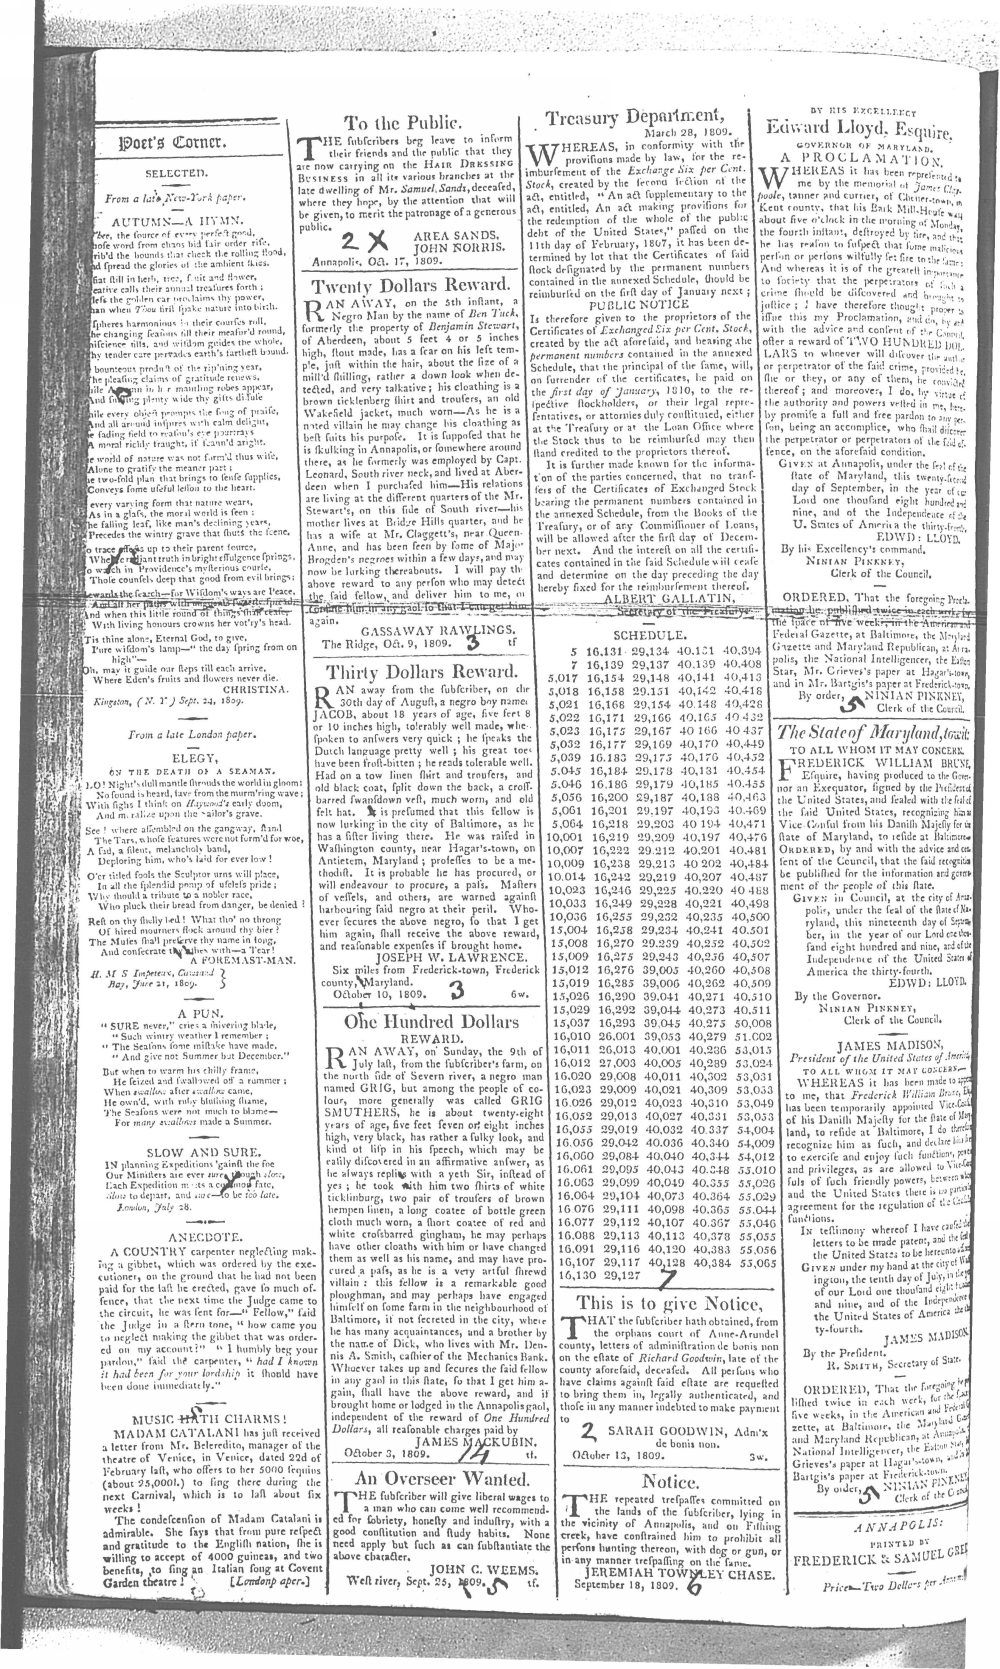 Poet's Corner.
SELECTED.
From a late New-York paper.
AUTUMN—A HYMN.
the ſource of every perfect good,
word from chaos bid fair order riſe,
the bounds that check the rolling flood,
ſpread the glories of the ambient ſkies.
ſtill in herb, tree, fruit and flower,
calls their annual treaſures forth ;
the golden car proclaims thy power,
when Thou firſt ſpake nature into birth.
Spheres harmonious in their courſes roll,
changing ſeaſons till their meaſur'd round,
tills, and wiſdom guides the whole,
thy tender care pervades earth's fartheſt bound.
bounteous product of the rip'ning year,
The pleaſing claims of gratitude renews,
in her manting robes appear,
And plenty wide thy gifts diffuſe
While every object prompts the ſong of praiſe,
And all around inſpires with calm delight,
fading field to reaſon's eye pourtrays
A moral richly fraught, if ſcann'd aright.
world of nature was not form'd thus wiſe,
Alone to gratify the meaner part ;
two-fold plan that brings to ſenſe ſupplies,
Conveys ſome uſeful leſſon to the heart.
every varying form that nature wears,
As in a glaſs, the moral world is ſeen :
The falling leaf, like man's declining years,
Precedes the wintry grave that ſhuts the ſcene.
To trace up to their parent ſource,
Where radiant truth in bright effulgence ſprings.
To watch in Providence's myſterious courſe,
Thoſe counſels deep that good from evil brings :
Rewards the ſearch—for Wiſdom's ways are Peace,
And all her paths with
And when this little round of things ſhall ceaſe,
With living honours crowns her vot'ry's head.
'Tis thine alone, Eternal God, to give,
Pure wiſdom's lamp—" the day ſpring from on
high"—
Oh, may it guide our ſteps till each arrive,
Where Eden's fruits and flowers never die.
CHRISTINA.
Kingston, (N. Y) Sept. 24, 1809.
From a late London paper.
ELEGY,
ON THE DEATH OF A SEAMAN.
LO! Night's dull mantle ſhrouds the world in gloom :
No ſound is heard, ſave from the murm'ring wave ;
With ſighs I think on Haywood's early doom,
And moralize upon the ſailor's grave.
See ! where aſſembled on the gangway, ſtand
The Tars, whoſe features were not form'd for woe,
A ſad, a ſilent, melancholy band,
Deploring him, who's laid for ever low !
O'er titled fools the Sculptor urns will place,
In all the ſplendid pomp of uſeleſs pride ;
Why ſhould a tribute to a nobler race,
Who pluck their bread from danger, be denied ?
Reſt on thy ſhelly bed ! What tho' no throng
Of hired mourners flock around thy bier ?
The Muſes ſhall preſerve thy name in ſong,
And conſecrate thy aſhes with—a Tear !
A FOREMAST-MAN.
H. M S Imperieux, Cawsand
Bay, June 21, 1809.
A PUN.
" SURE never," cries a ſhivering blade,
" Such wintry weather I remember ;
" The Seaſons ſome miſtake have made,
" And give not Summer but December."
But when to warm his chilly frame,
He ſeized and ſwallowed off a rummer ;
When swallow after swallow came,
He own'd, with ruby bluſhing flame,
The Seaſons were not much to blame—
For many swallows made a Summer.
SLOW AND SURE.
IN planning Expeditions 'gainſt the foe
Our Miniſters are ever sure, though slow,
Each Expedition meets a common fate,
Slow to depart, and sure—to be too late.
London, July 28.
ANECDOTE.
A COUNTRY carpenter neglecting mak-
ing a gibbet, which was ordered by the exe-
cutioner, on the ground that he had not been
paid for the laſt he erected, gave ſo much of-
fence, that the next time the Judge came to
the circuit, he was ſent for—" Fellow," ſaid
the Judge in a ſtern tone, " how came you
to neglect making the gibbet that was order-
ed on my account ?" " I humbly beg your
pardon," ſaid the carpenter, " had I known
it had been for your lordship it ſhould have
been done immediately."
MUSIC HATH CHARMS !
MADAM CATALANI has juſt received
a letter from Mr. Beleredito, manager of the
theatre of Venice, in Venice, dated 22d of
February laſt, who offers to her 5000 ſequins
(about 25,000l.) to ſing there during the
next Carnival, which is to laſt about ſix
weeks !
The condeſcenſion of Madam Catalani is
admirable. She ſays that from pure reſpect
and gratitude to the Engliſh nation, ſhe is
willing to accept of 4000 guineas, and two
benefits, to ſing an Italian ſong at Covent
Garden theatre ! [Londonp aper.]
To the Public.
THE ſubſcribers beg leave to inform
their friends and the public that they
are now carrying on the HAIR DRESSING
BUSINESS in all its various branches at the
late dwelling of Mr. Samuel Sands, deceaſed,
where they hope, by the attention that will
be given, to merit the patronage of a generous
public.
2 X AREA SANDS,
JOHN NORRIS.
Annapolis, Oct. 17, 1809.
Twenty Dollars Reward.
RAN AWAY, on the 5th inſtant, a
Negro Man by the name of Ben Tuck,
formerly the property of Benjamin Stewart,
of Aberdeen, about 5 feet 4 or 5 inches
high, ſtout made, has a ſcar on his left tem-
ple, juſt within the hair, about the ſize of a
mill'd ſhilling, rather a down look when de-
tected, and very talkative ; his cloathing is a
brown ticklenberg ſhirt and trouſers, an old
Wakefield jacket, much worn—As he is a
noted villain he may change his cloathing as
beſt ſuits his purpoſe. It is ſuppoſed that he
is ſkulking in Annapolis, or ſomewhere around
there, as he formerly was employed by Capt.
Leonard, South river neck, and lived at Aber-
deen when I purchaſed him—His relations
are living at the different quarters of the Mr.
Stewart's, on this ſide of South river—his
mother lives at Bridge Hills quarter, and he
has a wife at Mr. Claggett's, near Queen-
Anne, and has been ſeen by ſome of Major
Brogden's negroes within a few days, and may
now be lurking thereabouts. I will pay the
above reward to any perſon who may detect
the ſaid fellow, and deliver him to me, or
confine him in any gaol ſo that I can get him
again.
GASSAWAY RAWLINGS.
The Ridge, Oct. 9, 1809. 3 tf
Thirty Dollars Reward.
RAN away from the ſubſcriber, on the
30th day of Auguſt, a negro boy named
JACOB, about 18 years of age, five feet 8
or 10 inches high, tolerably well made, when
ſpoken to anſwers very quick ; he ſpeaks the
Dutch language pretty well ; his great toes
have been froſt-bitten ; he reads tolerable well.
Had on a tow linen ſhirt and trouſers, and
old black coat, ſplit down the back, a croſſ-
barred ſwanſdown veſt, much worn, and old
felt hat. It is preſumed that this fellow is
now lurking in the city of Baltimore, as he
has a ſiſter living there. He was raiſed in
Waſhington county, near Hagar's-town, on
Antietem, Maryland ; profeſſes to be a me-
thodiſt. It is probable he has procured, or
will endeavour to procure, a paſs. Maſters
of veſſels, and others, are warned againſt
harbouring ſaid negro at their peril. Who-
ever ſecures the above negro, ſo that I get
him again, ſhall receive the above reward,
and reaſonable expenſes if brought home.
JOSEPH W. LAWRENCE.
Six miles from Frederick-town, Frederick
county, Maryland.
October 10, 1809. 3 6w.
One Hundred Dollars
REWARD.
RAN AWAY, on Sunday, the 9th of
July laſt, from the ſubſcriber's farm, on
the north ſide of Severn river, a negro man
named GRIG, but among the people of co-
lour, more generally was called GRIG
SMUTHERS, he is about twenty-eight
years of age, five feet ſeven or eight inches
high, very black, has rather a ſulky look, and
kind of liſp in his ſpeech, which may be
eaſily diſcovered in an affirmative anſwer, as
he always replies with a yeth Sir, inſtead of
yes ; he took with him two ſhirts of white
ticklinburg, two pair of trouſers of brown
hempen linen, a long coatee of bottle green
cloth much worn, a ſhort coatee of red and
white croſsbarred gingham, he may perhaps
have other cloaths with him or have changed
them as well as his name, and may have pro-
cured a paſs, as he is a very artful ſhrewd
villain : this fellow is a remarkable good
ploughman, and may perhaps have engaged
himſelf on ſome farm in the neighbourhood of
Baltimore, if not ſecreted in the city, where
he has many acquaintances, and a brother by
the name of Dick, who lives with Mr. Den-
nis A. Smith, caſhier of the Mechanics Bank.
Whoever takes up and ſecures the ſaid fellow
in any gaol in this ſtate, ſo that I get him a-
gain, ſhall have the above reward, and if
brought home or lodged in the Annapolis gaol,
independent of the reward of One Hundred
Dollars, all reaſonable charges paid by
JAMES MACKUBIN.
October 3, 1809. 14 tf.
An Overseer Wanted.
THE ſubſcriber will give liberal wages to
a man who can come well recommend-
ed for ſobriety, honeſty and induſtry, with a
good conſtitution and ſtudy habits. None
need apply but ſuch as can ſubſtantiate the
above character.
JOHN C. WEEMS.
Weſt river, Sept. 25, 1809. 5 tf.
Treasury Department,
March 28, 1809.
WHEREAS, in conformity with the
proviſions made by law, for the re-
imburſement of the Exchange Six per Cent.
Stock, created by the ſecond ſection of the
act, entitled, " An act ſupplementary to the
act, entitled, An act making proviſions for
the redemption of the whole of the public
debt of the United States," paſſed on the
11th day of February, 1807, it has been de-
termined by lot that the Certificates of ſaid
ſtock deſignated by the permanent numbers
contained in the annexed Schedule, ſhould be
reimburſed on the firſt day of January next ;
PUBLIC NOTICE
Is therefore given to the proprietors of the
Certificates of Exchanged Six per Cent. Stock,
created by the act aforeſaid, and bearing the
permanent numbers contained in the annexed
Schedule, that the principal of the ſame, will,
on ſurrender of the certificates, be paid on
the first day of January, 1810, to the re-
ſpective ſtockholders, or their legal repre-
ſentatives, or attornies duly conſtituted, either
at the Treaſury or at the Loan Office where
the Stock thus to be reimburſed may then
ſtand credited to the proprietors thereof.
It is further made known for the informa-
t'on of the parties concerned, that no tranſ-
fers of the Certificates of Exchanged Stock
bearing the permanent numbers contained in
the annexed Schedule, from the Books of the
Treaſury, or of any Commiſſioner of Loans,
will be allowed after the firſt day of Decem-
ber next. And the intereſt on all the certifi-
cates contained in the ſaid Schedule will ceaſe
and determine on the day preceding the day
hereby fixed for the reimburſement thereof.
ALBERT GALLATIN,
Secretary of the Treaſury.
SCHEDULE.
5 16.131 29,134 40.131 40,394
7 16,139 29,137 40.139 40,408
5,017 16,154 29,148 40,141 40,413
5,018 16,158 29.151 40,142 40,418
5,021 16,168 29,154 40.148 40,428
5,022 16,171 29,166 40.165 40 432
5,023 16,175 29,167 40 166 40 437
5,032 16,177 29,169 40,170 40,449
5,039 16.183 29,175 40,176 40,452
5.045 16,184 29.178 40,181 40,454
5.046 16.186 29,179 40,185 40.455
5,056 16,200 29,187 40,188 40,463
5,061 16,201 29,197 40,193 40.469
5,064 16,218 29,203 40 194 40,471
10,001 16,219 29,209 40,197 40,476
10,007 16,222 29.212 40,201 40.481
10,009 16,238 29.213 40 202 40,484
10.014 16,242 29,219 40,207 40,487
10,023 16,246 29,225 40.220 40 488
10,033 16,249 29,228 40,221 40,498
10,036 16,255 29,232 40,235 40,500
15,004 16,258 29,234 40,241 40.501
15,008 16,270 29.239 40,252 40,502
15,009 16,275 29,243 40,256 40,507
15,012 16,276 39,005 40,260 40,508
15,019 16,285 39,006 40,262 40,509
15,026 16,290 39,041 40,271 40,510
15,029 16,292 39,044 40,273 40,511
15,037 16,293 39,045 40,275 50,008
16,010 26,001 39,053 40,279 51.002
16,011 26,013 40,001 40,286 53,015
16,012 27,003 40,005 40,289 53,024
16.020 29,008 40,011 40,302 53,031
16,023 29,009 40,021 40,309 53,033
16.026 29,012 40,023 40,310 53,049
16,052 29,013 40,027 40,331 53,053
16,055 29,019 40,032 40.337 54,004
16.056 29,042 40.036 40,340 54,009
16,060 29,084 40.040 40,344 54,012
16.061 29,095 40,043 40.348 55,010
16.063 29,099 40,049 40.355 55,026
16.064 29,104 40,073 40.364 55,029
16.076 29,111 40,098 40.365 55.044
16.077 29,112 40,107 40.367 55,046
16.088 29,113 40,113 40,378 55,055
16.091 29,116 40,120 40,383 55.056
16,107 29,117 40,128 40,384 55,065
16,130 29,127
7
This is to give Notice,
THAT the ſubſcriber hath obtained, from
the orphans court of Anne-Arundel
county, letters of adminiſtration de bonis non
on the eſtate of Richard Goodwin, late of the
county aforeſaid, deceaſed. All perſons who
have claims againſt ſaid eſtate are requeſted
to bring them in, legally authenticated, and
thoſe in any manner indebted to make payment
to
2 SARAH GOODWIN, Adm'x
de bonis non.
October 13, 1809. 3w.
Notice.
THE repeated treſpaſſes committed on
the lands of the ſubſcriber, lying in
the vicinity of Annapolis, and on Fiſhing
creek, have conſtrained him to prohibit all
perſons hunting thereon, with dog or gun, or
in any manner treſpaſſing on the ſame.
JEREMIAH TOWNLEY CHASE.
September 18, 1809. 6
BY HIS EXCELLENCY
Edward Lloyd, Esquire,
GOVERNOR OF MARYLAND,
A PROCLAMATION.
WHEREAS it has been repreſented to
me by the memorial of James Clay-
poole, tanner and currier, of Cheſter-town, in
Kent county, that his Bark Mill-Houſe was
about five o'clock in the morning of Monday,
the fourth inſtant, deſtroyed by fire, and that
he has reaſon to ſuſpect that ſome malicious
perſon or perſons wilfully ſet fire to the ſame :
And whereas it is of the greateſt importance
to ſociety that the perpetrators of ſuch a
crime ſhould be diſcovered and brought to
juſtice ; I have therefore thought proper to
iſſue this my Proclamation, and do, by and
with the advice and conſent of the Council,
offer a reward of TWO HUNDRED DOL-
LARS to whoever will diſcover the author
or perpetrator of the ſaid crime, provided he,
ſhe or they, or any of them, be convicted
thereof ; and moreover, I do, by virtue of
the authority and powers veſted in me, here-
by promiſe a full and free pardon to any per-
ſon, being an accomplice, who ſhall diſcover
the perpetrator or perpetrators of the ſaid of-
fence, on the aforeſaid condition.
GIVEN at Annapolis, under the ſeal of the
ſtate of Maryland, this
day of September, in the year of our
Lord one thouſand eight hundred and
nine, and of the Independence of the
U. States of America the thirty-fourth.
EDWD: LLOYD.
By his Excellency's command,
NINIAN PINKNEY,
Clerk of the Council.
ORDERED, That the foregoing Procla-
mation be publiſhed twice in each week, for
the ſpace of five weeks, in the American and
Federal Gazette, at Baltimore, the Maryland
Gazette and Maryland Republican, at Anna-
polis, the National Intelligencer, the Eaſton
Star, Mr. Grieves's paper at Hagar's-town,
and in Mr. Bartgis's paper at Frederick-town.
By order, NINIAN PINKNEY,
5 Clerk of the Council.
The State of Maryland, to wit:
TO ALL WHOM IT MAY CONCERN.
FREDERICK WILLIAM BRUNE,
Eſquire, having produced to the Gover-
nor an Exequator, ſigned by the Preſident of
the United States, and ſealed with the ſeal of
the ſaid United States, recognizing him as
Vice Conſul from his Daniſh Majeſty for the
ſtate of Maryland, to reſide at Baltimore
ORDERED, by and with the advice and con-
ſent of the Council, that the ſaid recognition
be publiſhed for the information and govern-
ment of the people of this ſtate.
GIVEN in Council, at the city of Anna-
polis, under the ſeal of the ſtate of Ma-
ryland, this nineteenth day of Septem-
ber, in the year of our Lord one thou-
ſand eight hundred and nine, and of the
Independence of the United States of
America the thirty-fourth.
EDWD: LLOYD.
By the Governor.
NINIAN PINKNEY,
Clerk of the Council.
JAMES MADISON,
President of the United States of America,
TO ALL WHOM IT MAY CONCERN—
WHEREAS it has been made to appear
to me, that Frederick William Brune,
has been temporarily appointed Vice-Conſul
of his Daniſh Majeſty for the ſtate of Mary-
land, to reſide at Baltimore, I do therefore
recognize him as ſuch, and declare him free
to exerciſe and enjoy ſuch functions, powers
and privileges, as are allowed to Vice-Con-
ſuls of ſuch friendly powers, between whom
and the United States there is no particular
agreement for the regulation of the Conſular
functions.
IN teſtimony whereof I have cauſed theſe
letters to be made patent, and the ſeal of
the United States to be hereunto
GIVEN under my hand at the city of Waſh-
ington, the tenth day of July, in the year
of our Lord one thouſand eight hundred
and nine, and of the Independence of
the United States of America the thir-
ty-fourth.
JAMES MADISON.
By the Preſident.
R. SMITH, Secretary of State.
ORDERED, That the foregoing be pub-
liſhed twice in each week, for the ſpace of
five weeks, in the American and Federal Ga-
zette, at Baltimore, the Maryland Gazette
and Maryland Republican, at Annapolis, the
National Intelligencer, the Eaſton Star, Mr.
Grieves's paper at Hagar's-town, and in Mr.
Bartgis's paper at Frederick-town.
By order, NINIAN PINKNEY,
5 Clerk of the Council.
ANNAPOLIS:
PRINTED BY
FREDERICK & SAMUEL GREEN.
Price—Two Dollars per Annum.